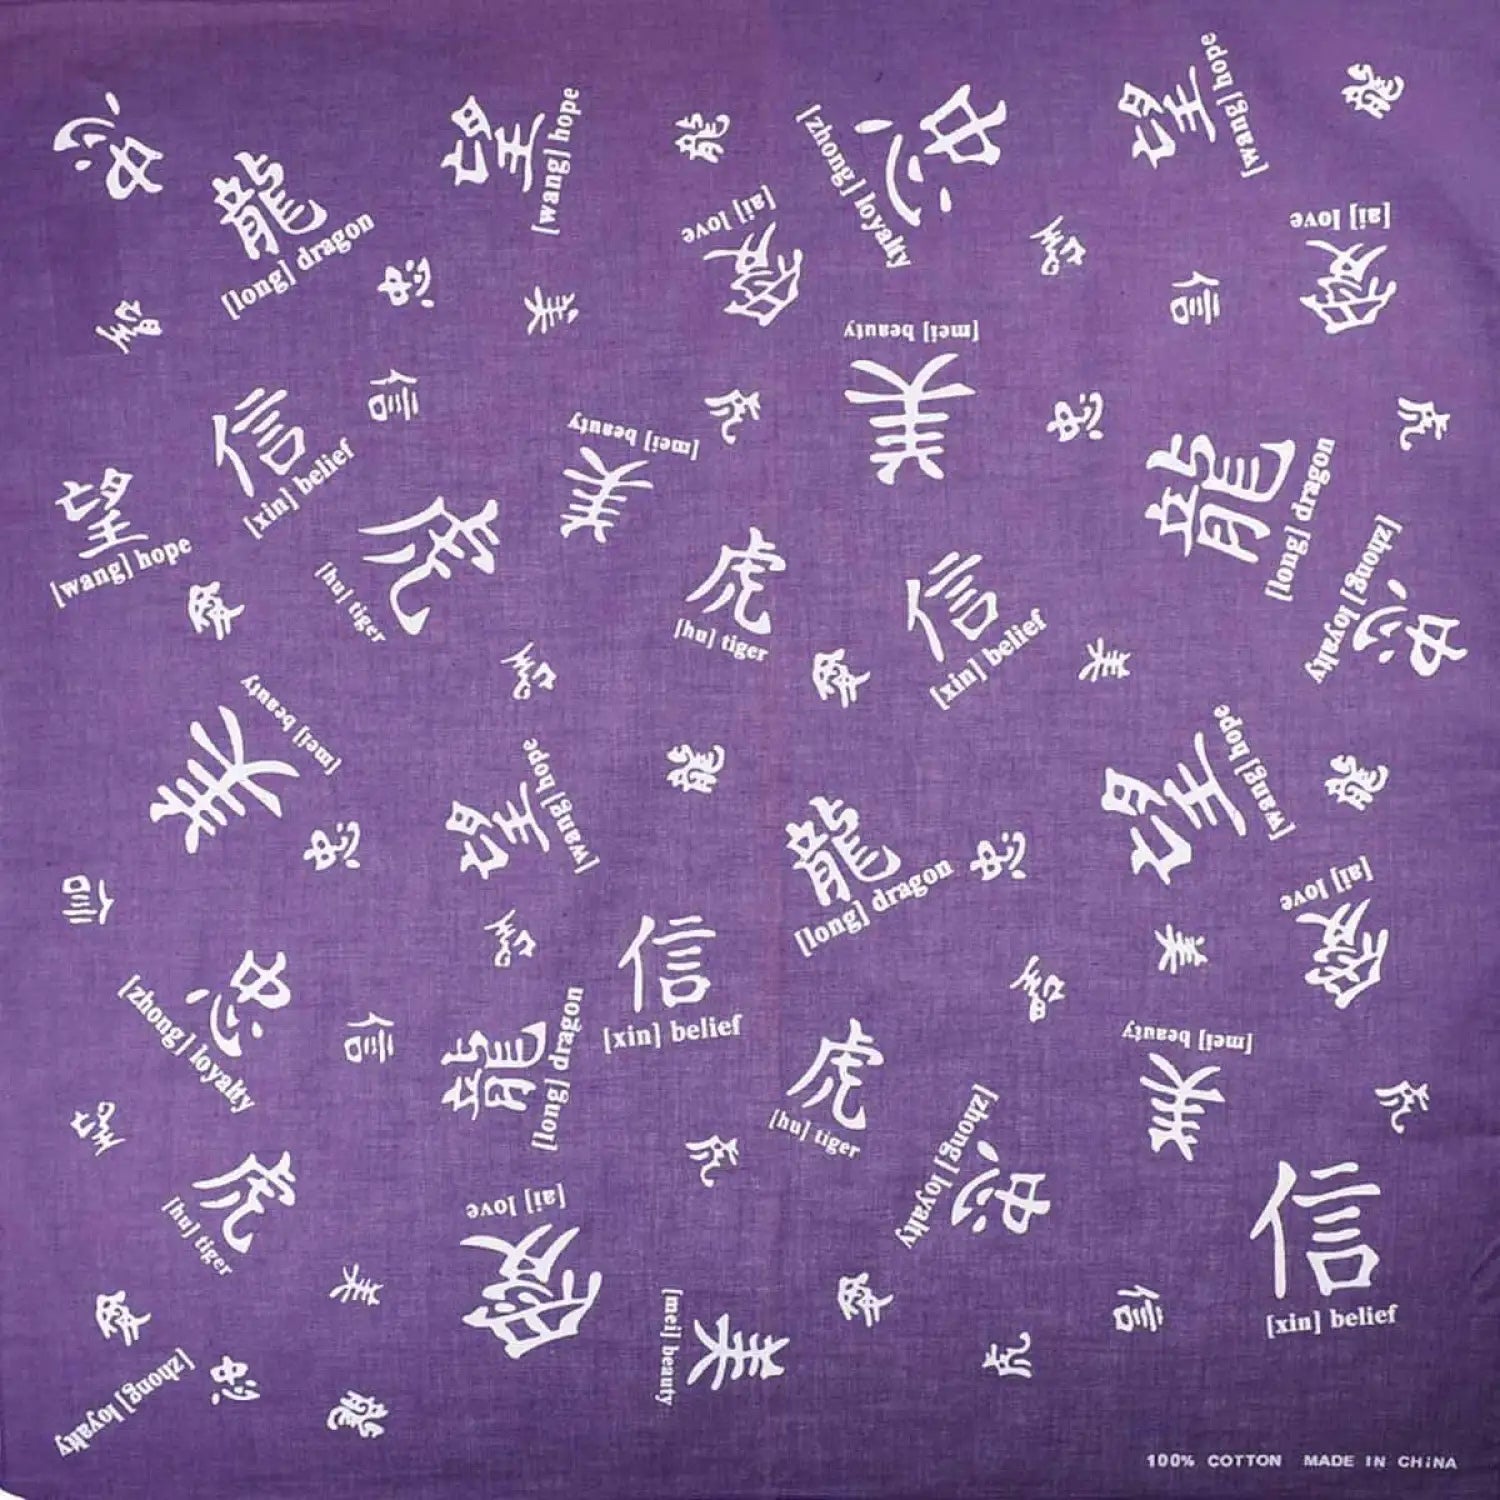 忠
龍
[long] dragon
望
[wang] hope
龍
忠
[zhong] loyalty
望
[wang] hope
龍
愛
[ai] love
愛
[ai] love
望
忠
美
望
信
信
[xin] belief
信
美
[mei] beauty
虎
美
[mei] beauty
忠
虎
望
[wang] hope
虎
[hu] tiger
龍
[long] dragon
忠
[zhong] loyalty
愛
虎
[hu] tiger
信
[xin] belief
望
愛
美
美
[mei] beauty
忠
望
[wang] hope
龍
龍
[long] dragon
忠
望
[wang] hope
龍
愛
[ai] love
信
忠
[zhong] loyalty
望
信
[xin] belief
美
望
信
龍
[long] dragon
虎
[hu] tiger
美
[mei] beauty
虎
望
虎
[hu] tiger
虎
忠
[zhong] loyalty
信
[xin] belief
愛
[ai] love
美
愛
美
[mei] beauty
愛
信
虎
忠
[zhong] loyalty
龍
100% COTTON MADE IN CHINA